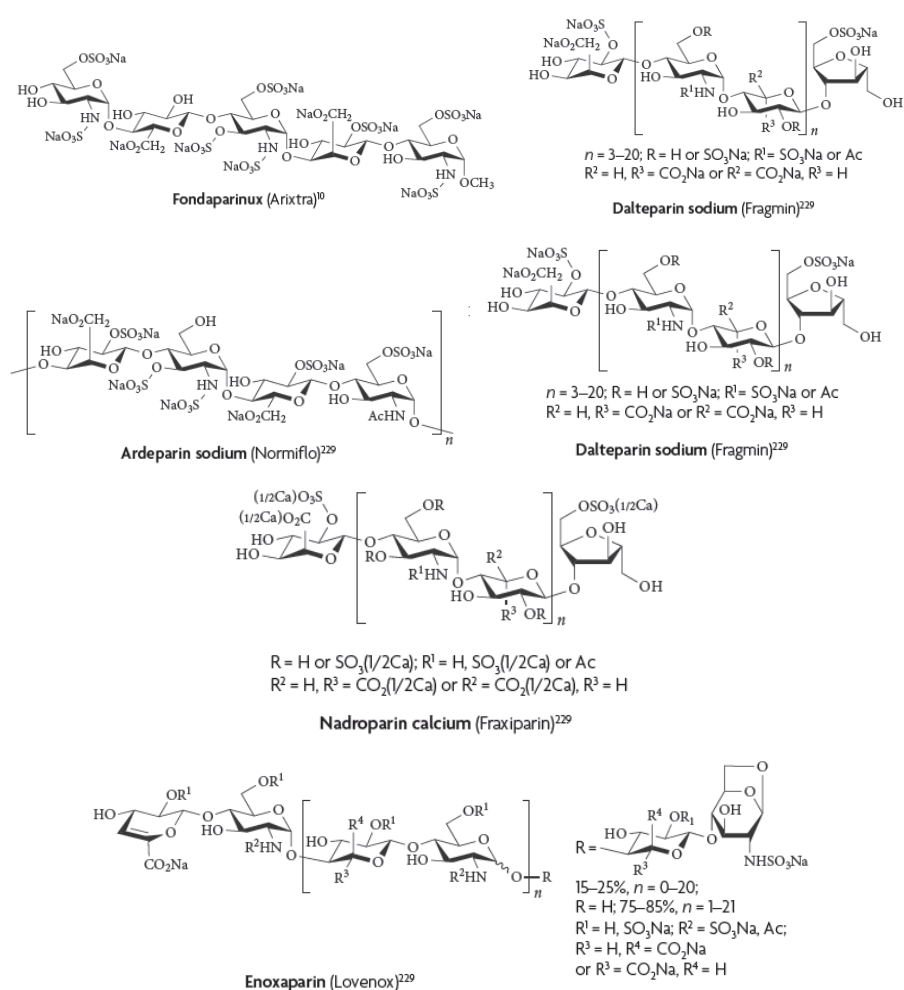 OSO₃Na
HO
HO
NaO₃S
HN
O
O
HO
OH
NaO₂CH₂
O
O
OSO₃Na
O
NaO₃S
O
NaO₃S
HN
O
NaO₂CH₂
HO
OSO₃Na
O
O
OSO₃Na
O
HO
HN
NaO₃S
OCH₃
Fondaparinux (Arixtra)¹⁰
NaO₃S
NaO₂CH₂
O
HO
HO
O
O
OR
O
HO
R¹HN
O
R²
O
HO
R³
OR
n
O
OSO₃Na
O
OH
OH
n = 3–20; R = H or SO₃Na; R¹= SO₃Na or Ac
R² = H, R³ = CO₂Na or R² = CO₂Na, R³ = H
Dalteparin sodium (Fragmin)²²⁹
NaO₂CH₂
HO
OSO₃Na
O
O
O
OH
O
NaO₃S
O
NaO₃S
HN
O
HO
OSO₃Na
NaO₂CH₂
O
O
OSO₃Na
O
HO
AcHN
O
n
Ardeparin sodium (Normiflo)²²⁹
:
NaO₃S
NaO₂CH₂
O
HO
HO
O
O
OR
O
HO
R¹HN
O
R²
O
HO
R³
OR
n
O
OSO₃Na
O
OH
OH
n = 3–20; R = H or SO₃Na; R¹= SO₃Na or Ac
R² = H, R³ = CO₂Na or R² = CO₂Na, R³ = H
Dalteparin sodium (Fragmin)²²⁹
(1/2Ca)O₃S
(1/2Ca)O₂C
O
HO
HO
O
O
OR
O
RO
R¹HN
O
R²
O
HO
R³
OR
n
O
OSO₃(1/2Ca)
O
OH
OH
R = H or SO₃(1/2Ca); R¹ = H, SO₃(1/2Ca) or Ac
R² = H, R³ = CO₂(1/2Ca) or R² = CO₂(1/2Ca), R³ = H
Nadroparin calcium (Fraxiparin)²²⁹
HO
OR¹
O
CO₂Na
O
OR¹
O
HO
R²HN
O
HO
R⁴
OR¹
O
R³
O
OR¹
O
HO
R²HN
O
R
n
R =
HO
R⁴
OR₁
O
R³
O
O
O
OH
NHSO₃Na
15–25%, n = 0–20;
R = H; 75–85%, n = 1–21
R¹ = H, SO₃Na; R² = SO₃Na, Ac;
R³ = H, R⁴ = CO₂Na
or R³ = CO₂Na, R⁴ = H
Enoxaparin (Lovenox)²²⁹